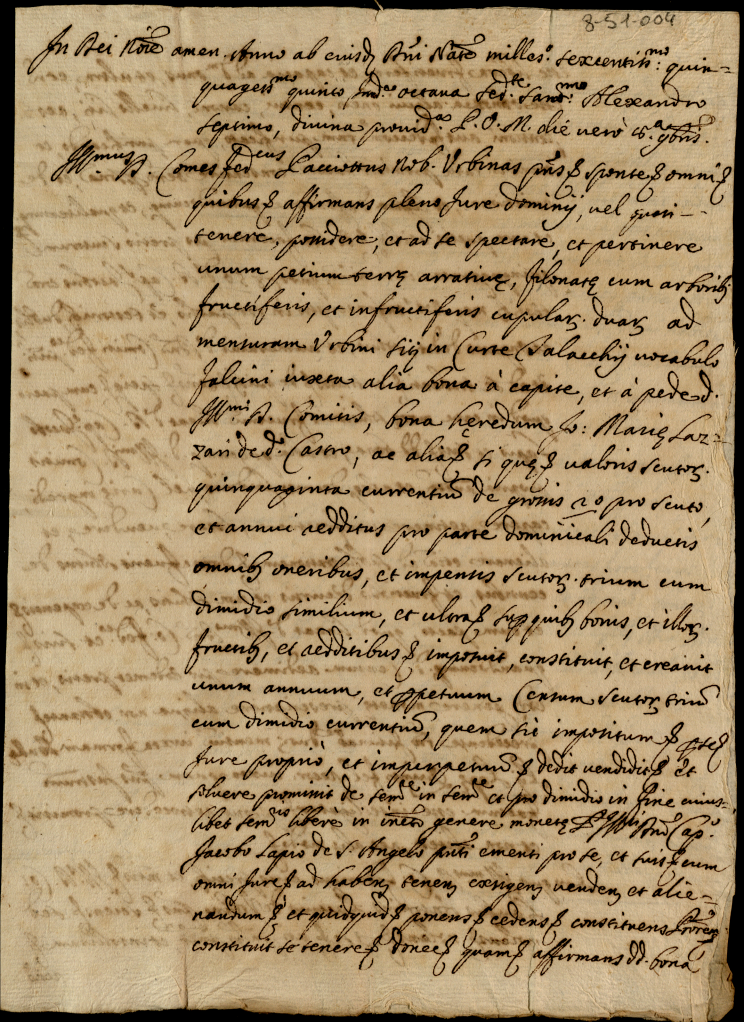 8-51-004
In Dei Nõie amen. Anno ab eiusd. Dñi Natte milles.o sexcentis.mo: quin=
quages.mo quinto, Ind.e octava Sed.te Sanct.mo Alexandro
septimo, divina provid.a P. O. M. die vero
Ill.mus D. Comes Fed.cus Pacciottus Nob. Urbinas pñs& sponte& omni&
quibus& affirmans pleno Jure dominij, vel quasi -
tenere, possidere, et ad se spectare, et pertinere
unum petium terrę arrativę, filonatę cum arborib;
fructiferis, et infructiferis cupular. duar. ad
mensuram Urbini sitj in Curte Salacchij vocabulo
Falcini iuxta alia bona à capite, et à pede d.
Ill.mi D. Comitis, bona hęredum Jo: Marię Laz=
zari de d.o Castro, ac alia& si quę& valoris scutor.
quinquaginta currentiũ de grossis 20 pro scuto,
et annui redditus pro parte dominicali deductis
omnib; oneribus, et impensis scutor. trium cum
dimidio similium, et ultra& sup quib; bonis, et illor.
fructib;, et redditibus& imposuit, constituit, et creavit
unum annuum, et ppetuum Censum scutor. triũ
cum dimidio currentiũ, quem sic impositum&
Jure proprio, et imperpetuũ& dedit vendidit& et
solvere promisit de sem.re in sem.re et pro dimidio in fine cuius-
libet sem.ris liberè in genere monetę Ill. Dño Cap.o
Jacobo Lapio de S. Angelo pñti ementi pro se, et suis& cum
omni Jure& ad haben, tenen, exigen, venden, et alie-
nandum& et quidquid& ponens& cedens& constituens
constituit se tenere& donec& quam& affirmans dd. bona